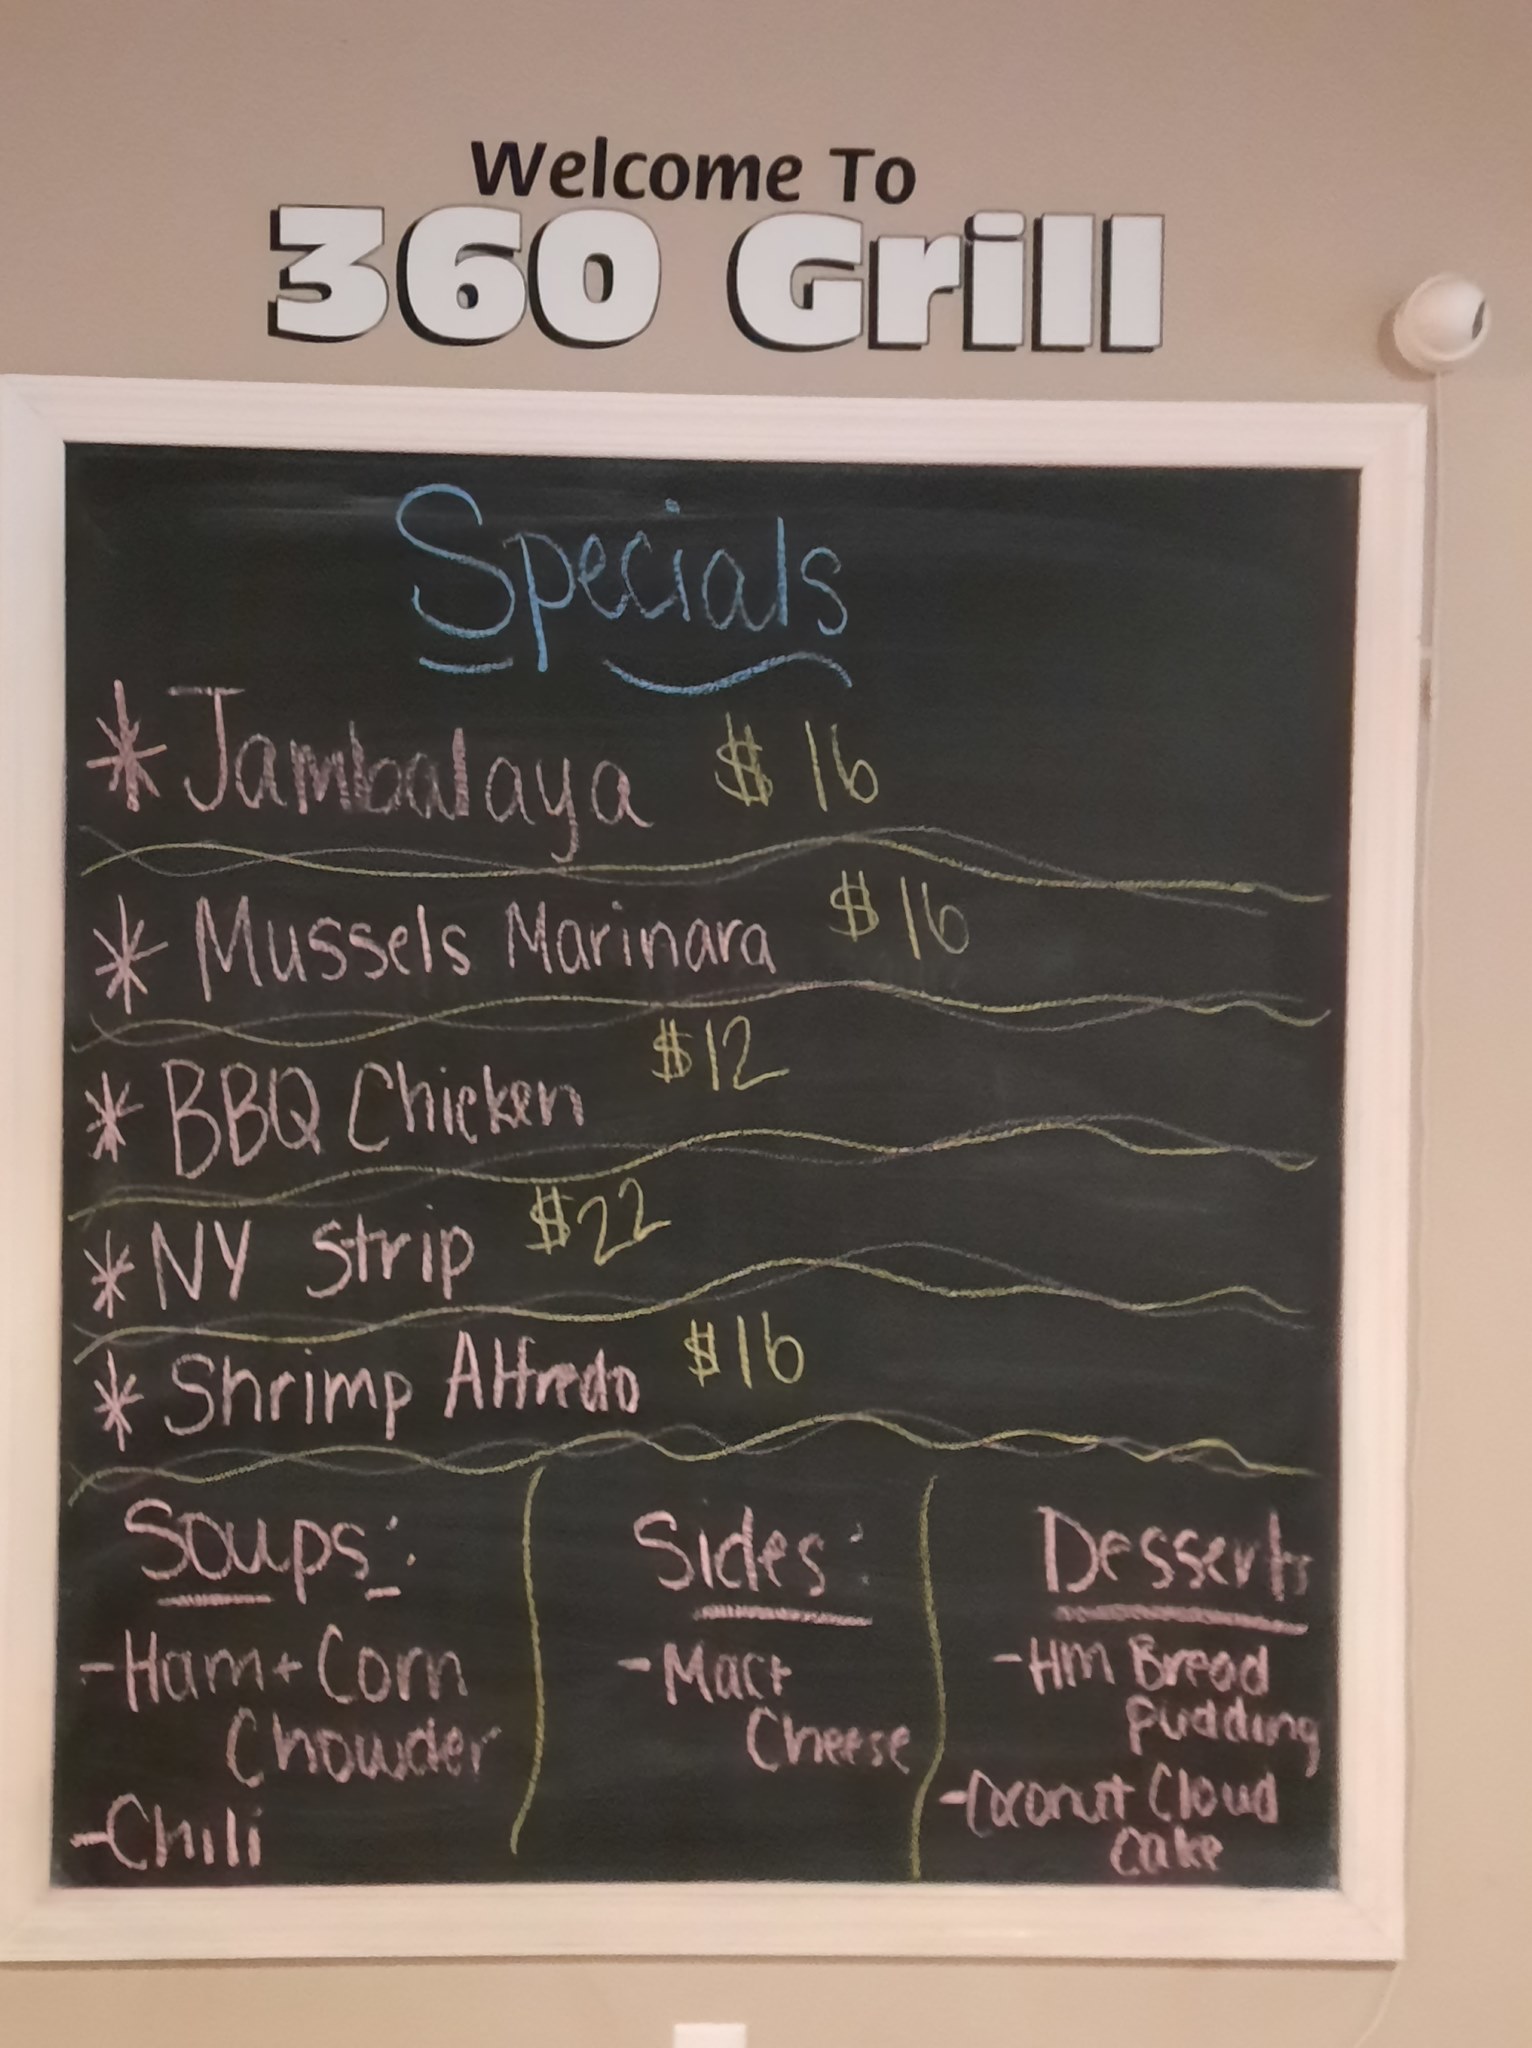 Welcome To
360 Grill
Specials
* Jambalaya $16
* Mussels Marinara $16
* BBQ Chicken $12
* NY Strip $22
* Shrimp Alfredo $16
Soups:
-Ham + Corn
Chowder
-Chili
Sides:
-Mac +
Cheese
Desserts
-HM Bread
Pudding
-Coconut Cloud
Cake